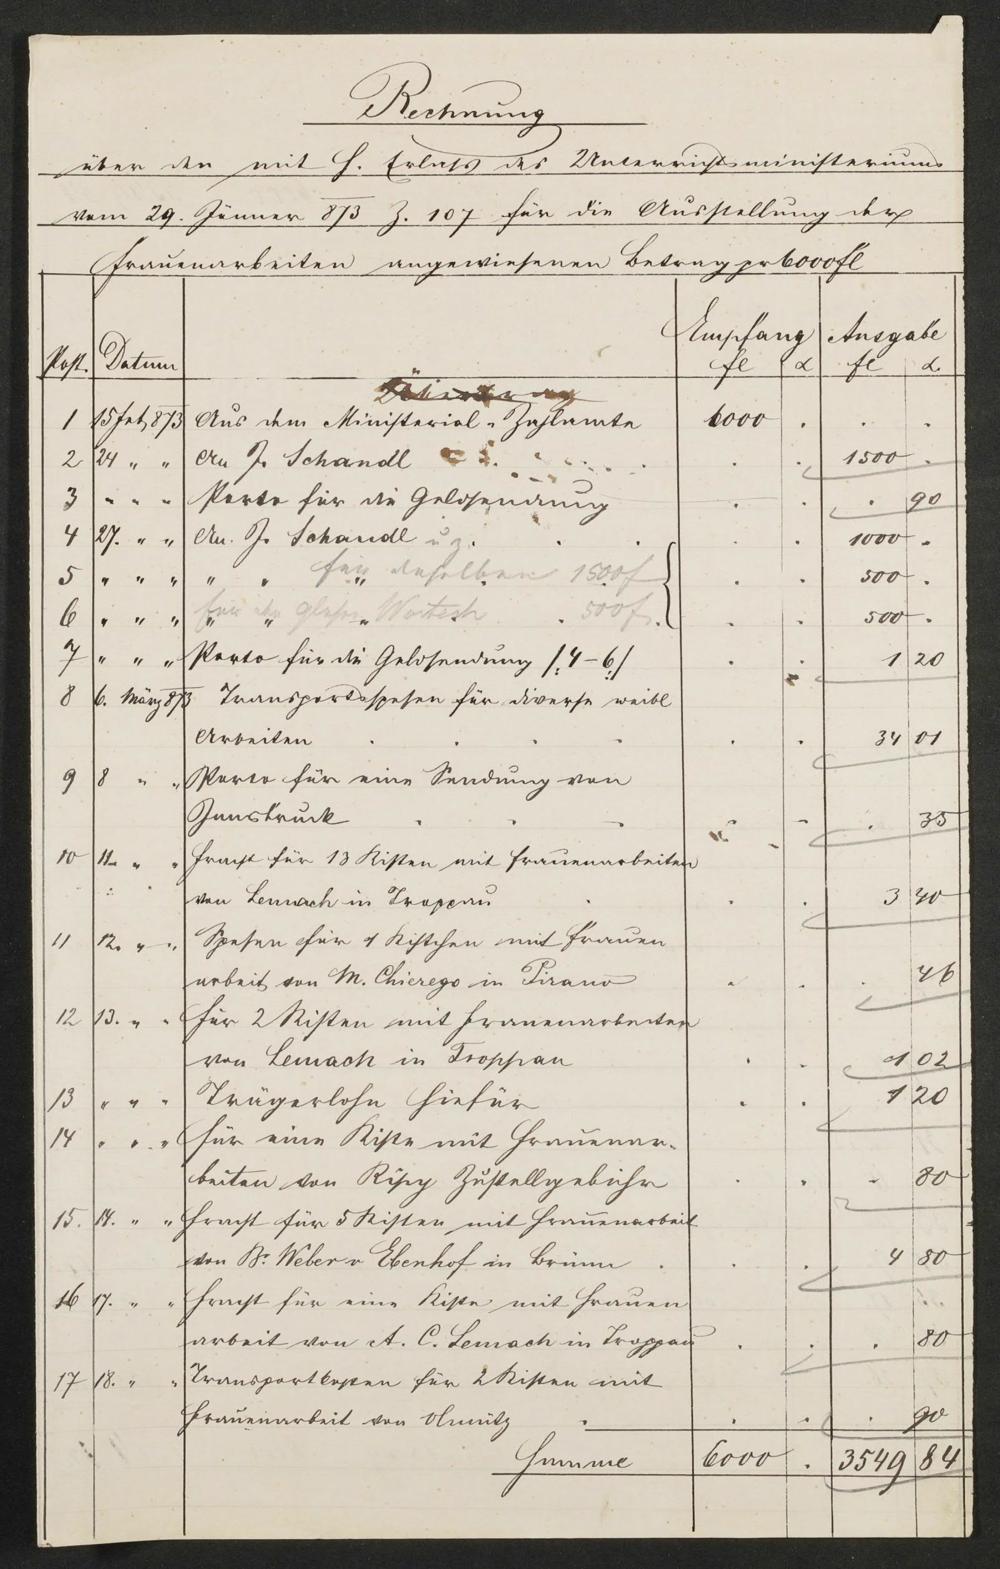 Rechnung
über den mit h. Erlaß des Unterrichtsministeriums
vom 29. Jänner 873 Z. 107 für die Ausstellung der
Frauenarbeiten angewiesenen Betrag pr 6000 fl
Post. Datum Empfang Ausgabe
fl x fl x.
1 15 Feb 873 Aus dem Ministerial-Zahlamte 6000 . . .
2 24 " " An J. Schandl . . 1500 .
3 " " " Porto für die Geldsendung . . . 90
4 27. " " An J. Schandl . . 1000 .
5 " " " " " für denselben 1500 f . . 500 .
6 " " " " " " 500 f. . . 500 .
7 " " " Porto für die Geldsendung /: 4-6 :/ . . 1 20
8 6. März 873 Transportsspesen für diverse weibl
Arbeiten . . . . . . 34 01
9 8 " " Porto für eine Sendung von
Innsbruck . . . . . . 35
10 11. " " Fracht für 13 Kisten mit Frauenarbeiten
von Lemach in Troppau . . . 3 40
11 12. " " Spesen für 1 Kistchen mit Frauen
arbeit von M. Chierego in Pirano . . . 46
12 13. " " Für 2 Kisten mit Frauenarbeiten
von Lemach in Troppau . . 1 02
13 " " " Trägerlohn hiefür . . 1 20
14 " " " Für eine Kiste mit Frauenar-
beiten von Zustellgebühr . . . 80
15. 14. " " Fracht für 5 Kisten mit Frauenarbeit
von Br. Weber v Ebenhof in Brünn . . . 4 80
16 17. " " Fracht für eine Kiste mit Frauen
arbeit von A. C. Lemach in Troppau . . . 80
17 18. " " Transportkosten für 2 Kisten mit
Frauenarbeit von Olmütz . . . . 90
Summe 6000 . 3549 84